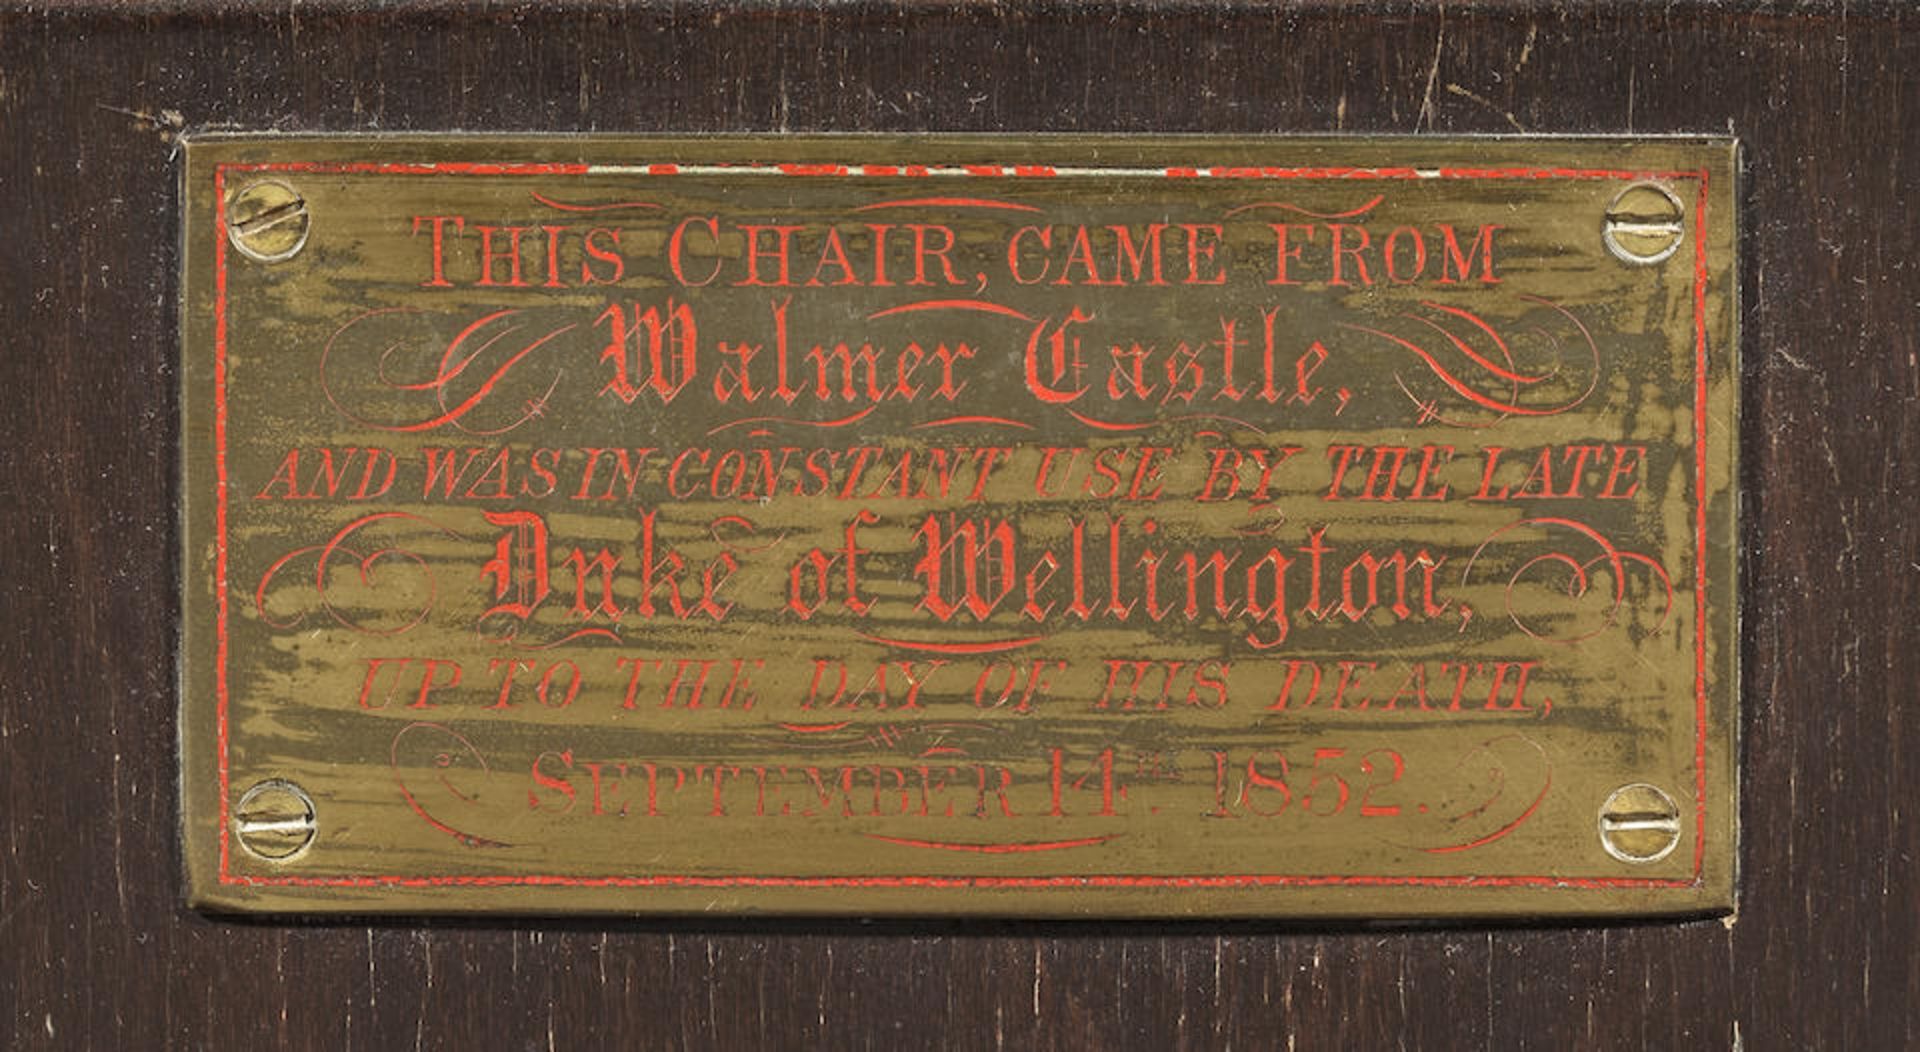 THIS CHAIR, CAME FROM
Walmer Castle,
AND WAS IN CONSTANT USE BY THE LATE
Duke of Wellington,
UP TO THE DAY OF HIS DEATH,
SEPTEMBER 14TH. 1852.